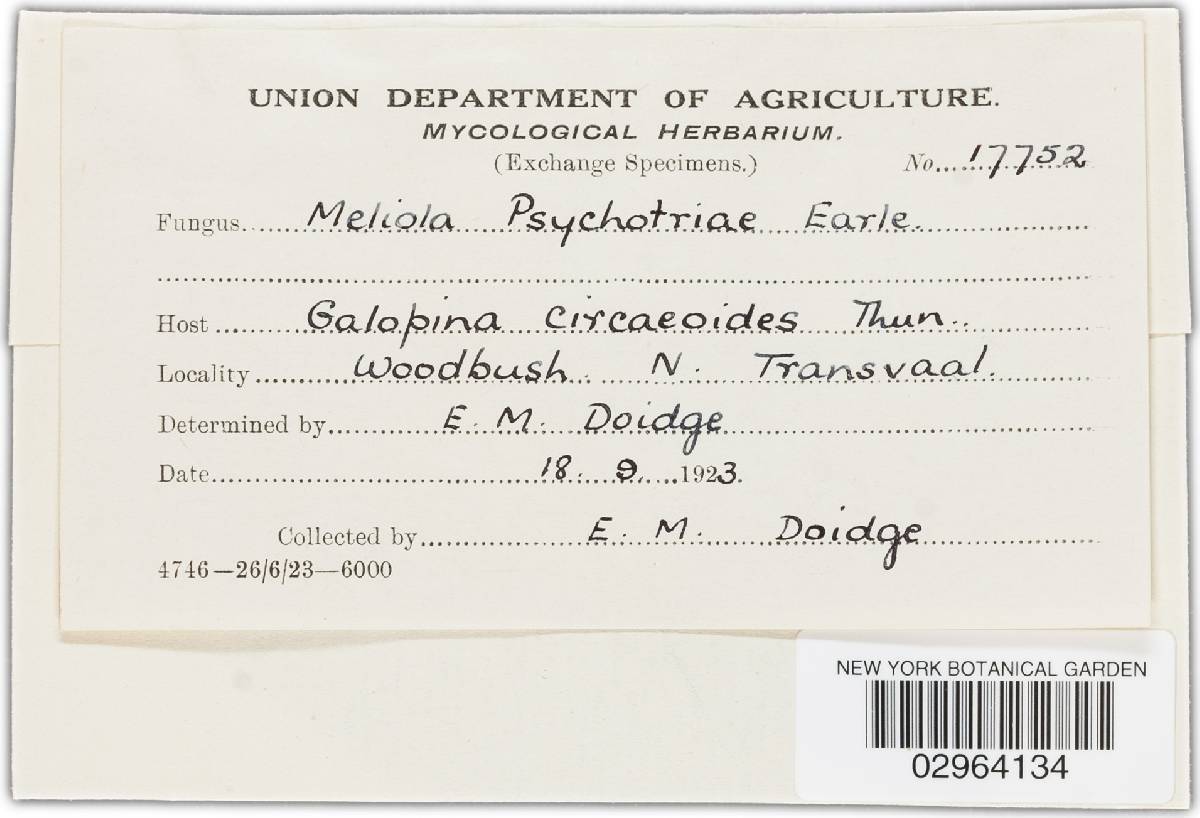 UNION DEPARTMENT OF AGRICULTURE.
MYCOLOGICAL HERBARIUM.
(Exchange Specimens.) No. 17752
Fungus Meliola Psychotriae Earle.
Host Galopina circaeoides Thun.
Locality Woodbush. N. Transvaal.
Determined by E. M. Doidge
Date 18. 9. 1923.
Collected by E. M. Doidge
4746—26/6/23—6000
NEW YORK BOTANICAL GARDEN
02964134